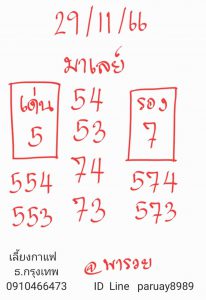 29/11/66
มาเลย์
เด่น 54 รอง
5 53 7
554 74 574
553 73 573
เลี้ยงกาแฟ
ธ.กรุงเทพ @พารวย
0910466473 ID Line paruay8989